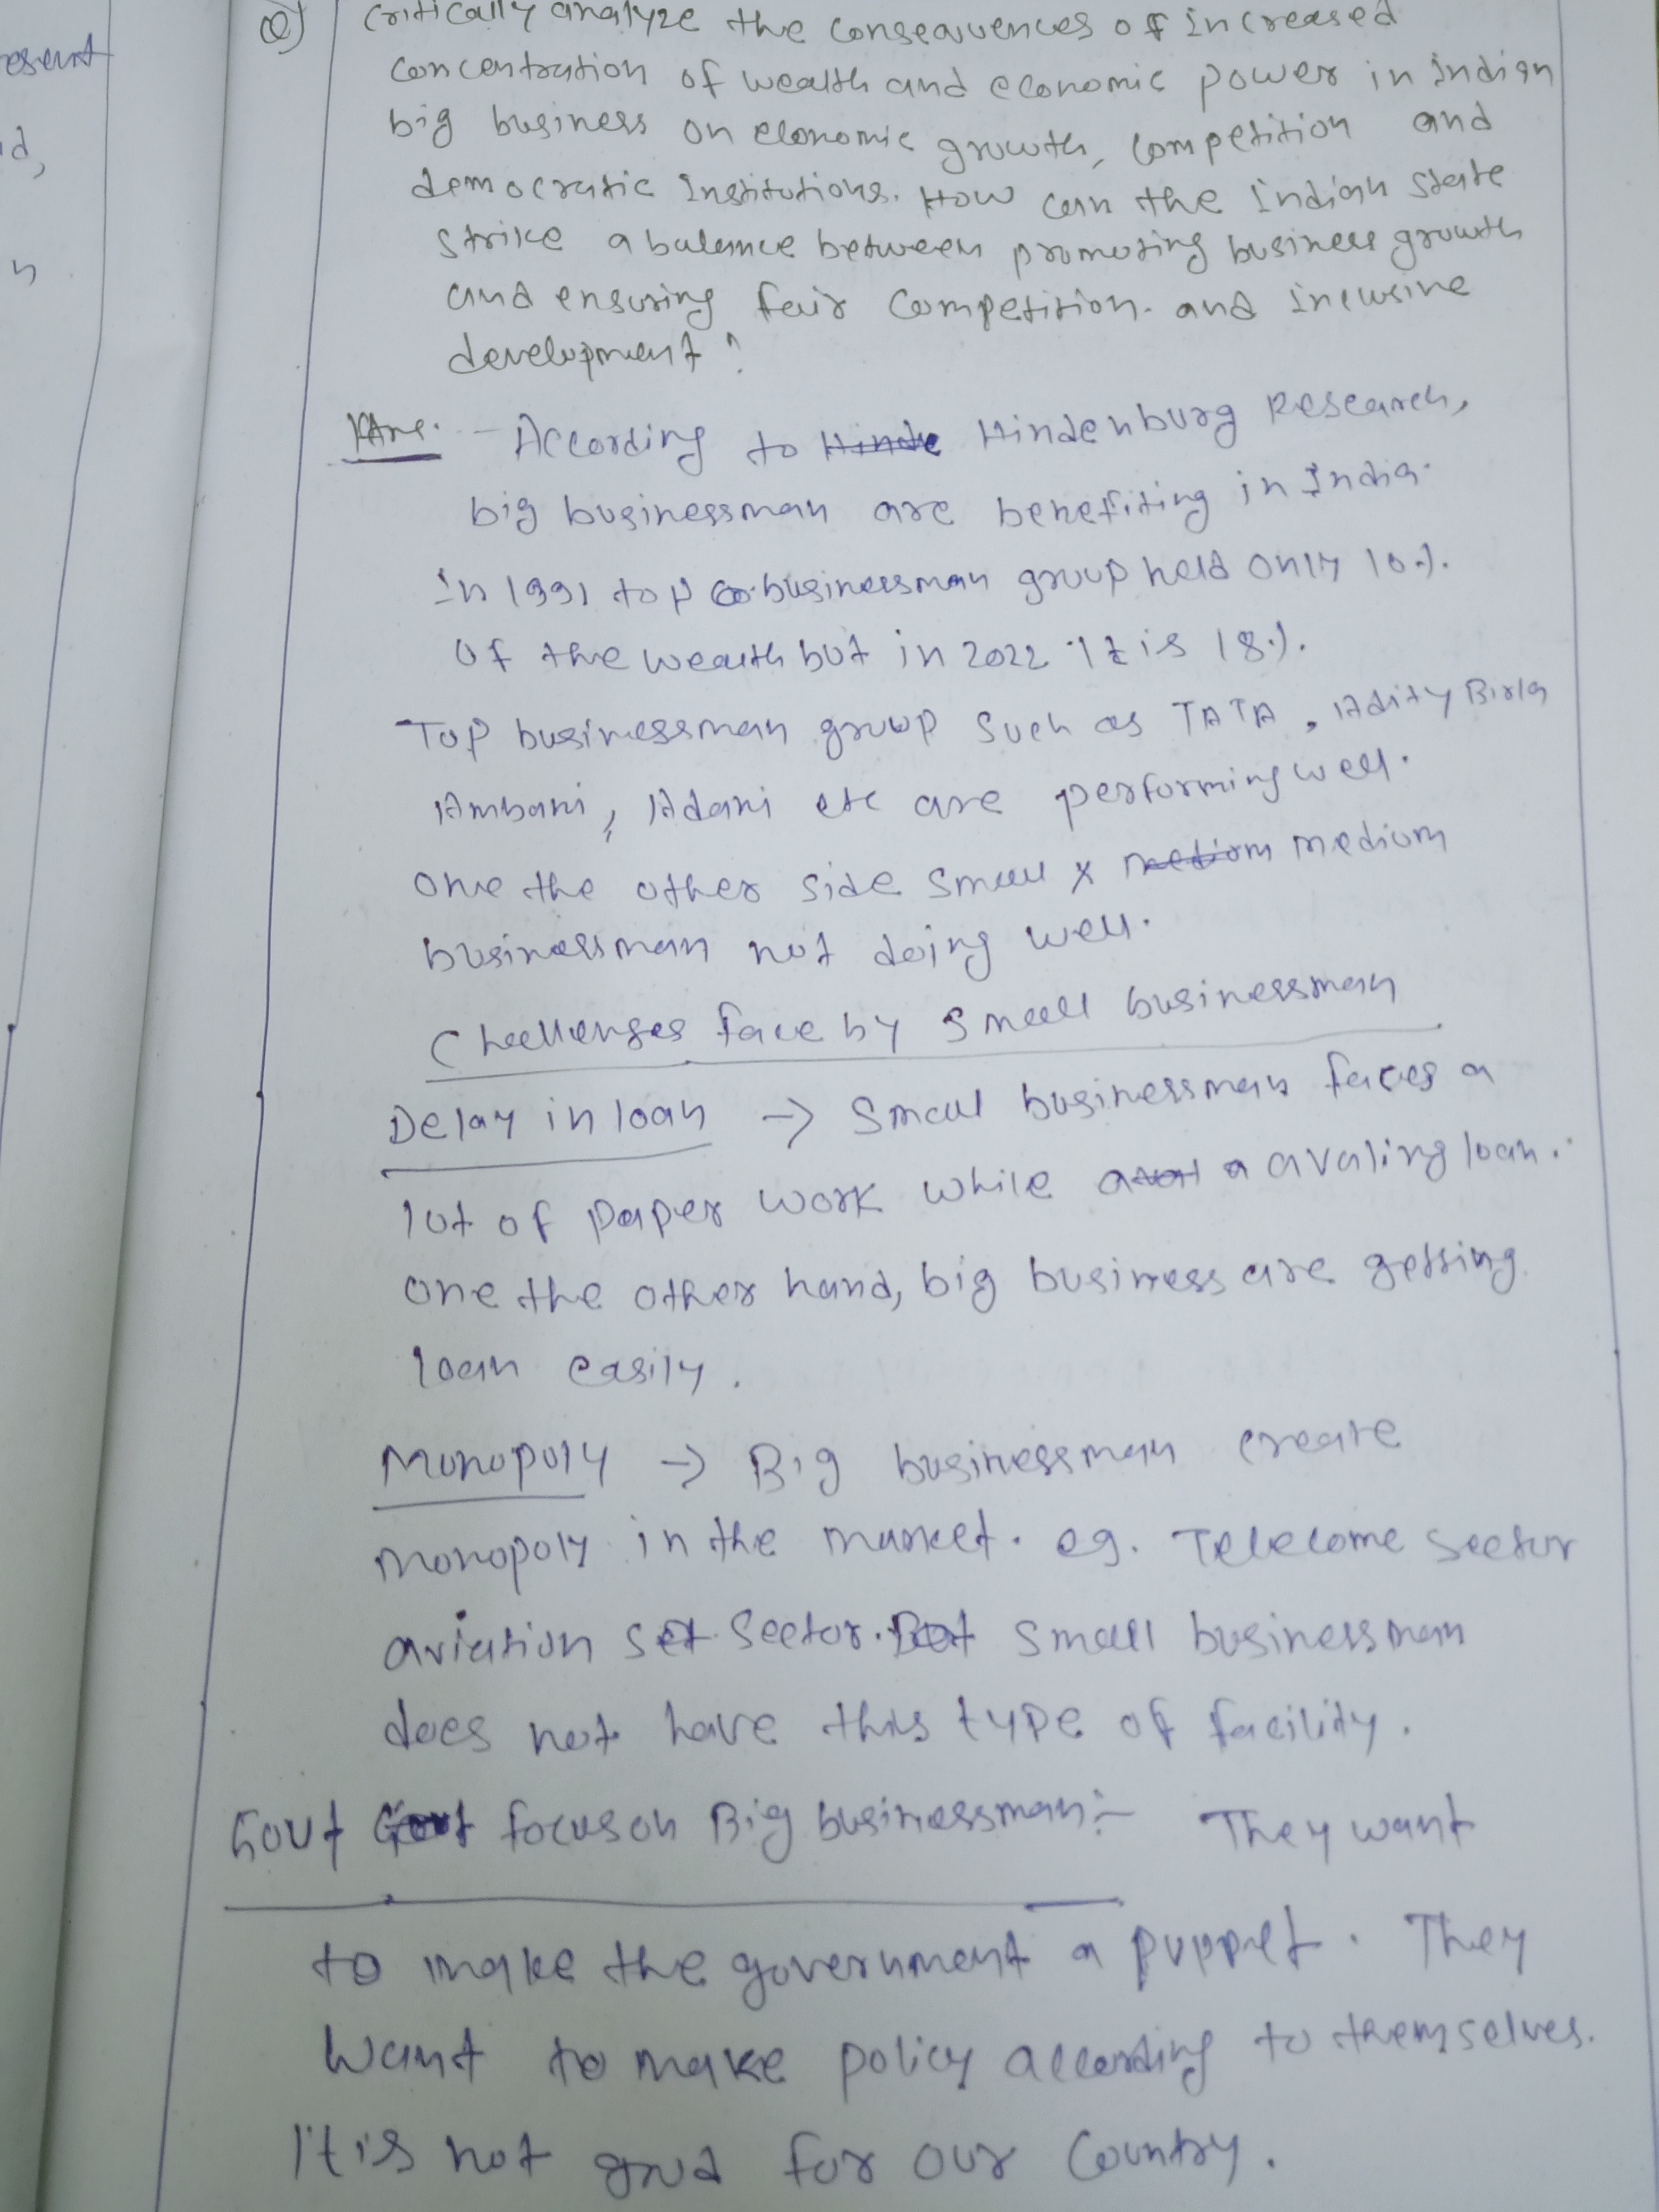 esent
d,
n
Q) Critically analyze the consequences of increased
concentration of wealth and economic power in indian
big business on economic growth, competition and
democratic Institutions. How can the Indian state
strike a balance between promoting business growth
and ensuring fair competition. and inclusive
development?
Ans. - According to Hinde Hindenburg Research,
big businessman are benefiting in India.
In 1991 top businessman group held only 10%.
of the wealth but in 2022 it is 18%.
Top businessman group such as TATA, Adity Birla
Ambani, Adani etc are performing well.
One the other side small & medium medium
businessman not doing well.
Challenges face by small businessman
Delay in loan → Small businessman faces a
lot of paper work while a avaling loan.
One the other hand, big business are getting
loan easily.
Monopoly → Big businessman create
monopoly in the market. eg. Telecome sector
aviation set sector. But small businessman
does not have this type of facility.
Govt Govt focus on Big businessman:- They want
to make the government a puppet. They
want to make policy according to themselves.
It is not good for our Country.